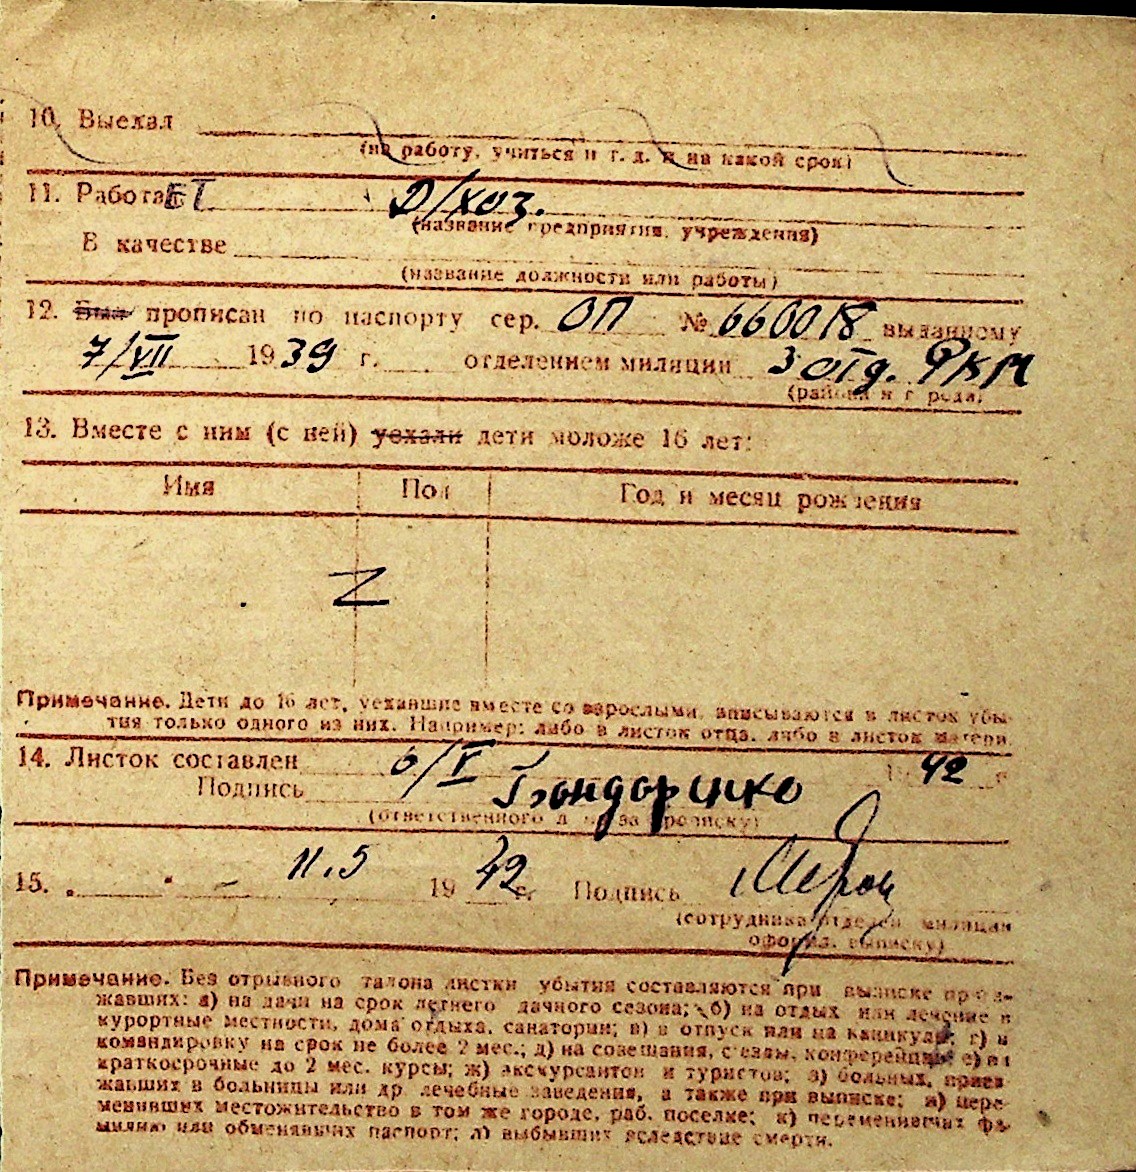 10. Выехал
(на работу, учиться и т. д. и на какой срок)
11. РаботаЕТ Д/хоз.
(название предприятия, учреждения)
В качестве
(название должности или работы)
12. Был прописан по паспорту сер. ОП № 660018 выданному
7/VII 1939 г. отделением милиции 3 отд. РКМ
(района и города)
13. Вместе с ним (с ней) уехали дети моложе 16 лет:
Имя Пол Год и месяц рождения
Z
Примечание. Дети до 16 лет, уехавшие вместе со взрослыми, вписываются в листок убы-
тия только одного из них. Например: либо в листок отца, либо в листок матери
14. Листок составлен 6/V 1942 г
Подпись Бондаренко
(ответственного за прописку)
15. 11.5 1942 г. Подпись
(сотрудника отделен. милиции
оформ. выписку)
Примечание. Без отрывного талона листки убытия составляются при выписке прож-
жавших: а) на дачи на срок летнего дачного сезона; б) на отдых или лечение в
курортные местности, дома отдыха, санатории; в) в отпуск или на каникулы; г) в
командировку на срок не более 2 мес.; д) на совещания, съезды, конференции; е) на
краткосрочные до 2 мес. курсы; ж) экскурсантов и туристов; з) больных, приез-
жавших в больницы или др. лечебные заведения, а также при выписке; и) пере-
менивших местожительство в том же городе, раб. поселке; к) переменивших фа-
милию или обменявших паспорт; л) выбывших вследствие смерти.